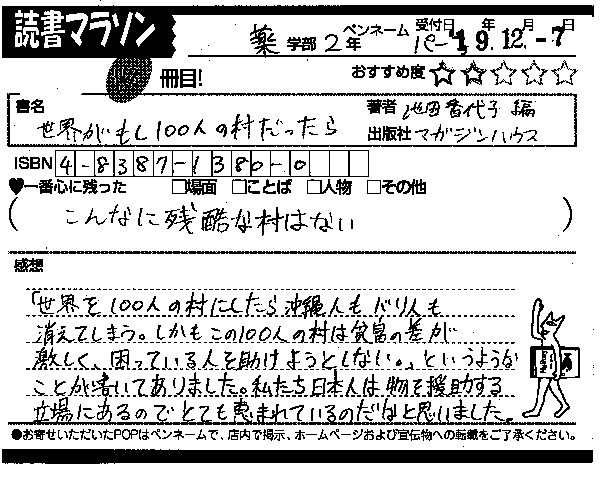 読書マラソン
薬 学部 2年 ペンネーム パー 受付日 年 月 日 1,9.12.-7
冊目! おすすめ度 ☆☆☆☆☆
書名 世界がもし100人の村だったら 著者 池田香代子 編
出版社 マガジンハウス
ISBN 4-8387-1380-0
♥一番心に残った □場面 □ことば □人物 □その他
(こんなに残酷な村はない)
感想
「世界を100人の村にしたら沖縄人もバリ人も
消えてしまう。しかもこの100人の村は貧富の差が
激しく、困っている人を助けようとしない。」というような
ことが書いてありました。私たち日本人は物を援助する
立場にあるのでとても恵まれているのだなと思いました。
●お寄せいただいたPOPはペンネームで、店内で掲示、ホームページおよび宣伝物への転載をご了承ください。